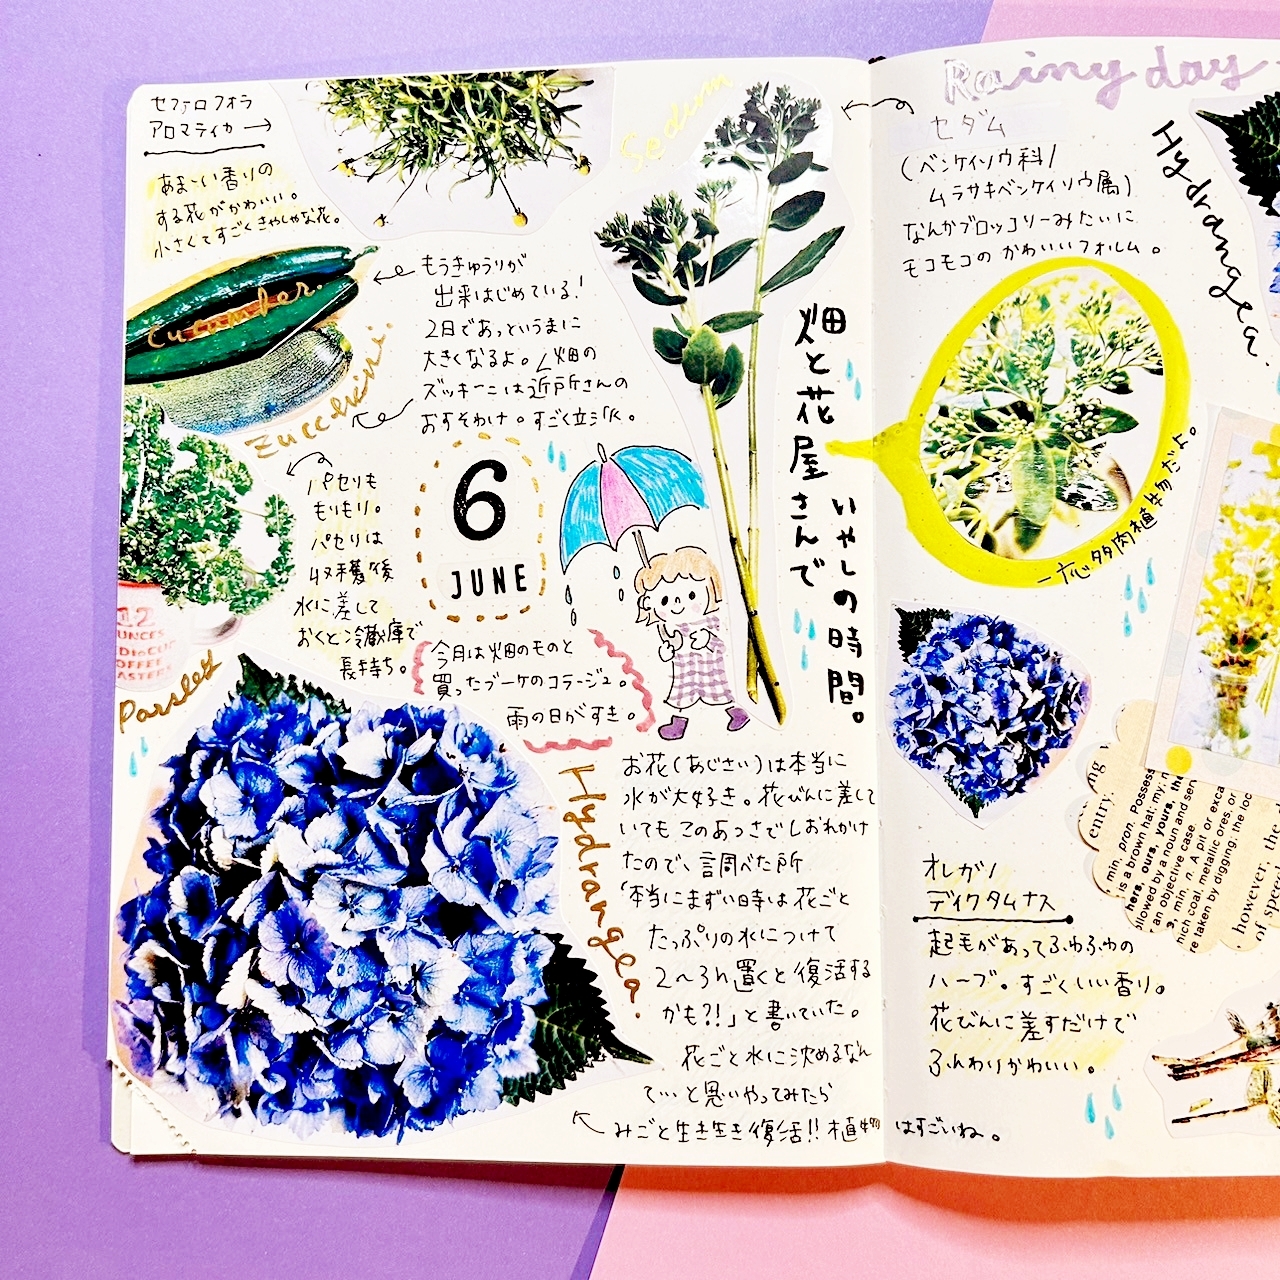 セファロフォラ
アロマティカ →
あま〜い香りの
する花がかわいい。
小さくてすごくきゃしゃな花。
Sedum
cucumber.
もうきゅうりが
出来はじめている!
2日であっというまに
大きくなるよ。/畑の
ズッキーニは近所さんの
おすそわけ。すごく立派。
zucchini
パセリも
もりもり。
パセリは
収穫後
水に差して
おくと冷蔵庫で
長持ち。
12
OUNCES
COFFEE
Parsley
6
JUNE
今月は畑のものと
買ったブーケのコラージュ。
雨の日がすき。
畑と花屋さんで
いやしの時間。
Hydrangea.
お花(あじさい)は本当に
水が大好き。花びんに差して
いてもこのあつさでしおれかけ
たので、調べた所
「本当にまずい時は花ごと
たっぷりの水につけて
2〜3h置くと復活する
かも?!」と書いていた。
花ごと水に沈めるなん
て…と思いやってみたら
みごと生き生き復活!!植物はすごいね。
Rainy day
セダム
(ベンケイソウ科/
ムラサキベンケイソウ属)
なんかブロッコリーみたいに
モコモコのかわいいフォルム。
Hydrangea.
一応多肉植物だよ。
オレガノ
ディクタムナス
起毛があってふわふわの
ハーブ。すごくいい香り。
花びんに差すだけで
ふんわりかわいい。
entry.
min, pron. Possess
is a brown hat; my; m
hers, ours, yours, the
ollowed by a noun and serv
r an objective case
3, min, n. A pit or exca
hich coal, metallic ores, or
re taken by digging; the loc
however, the
of spee